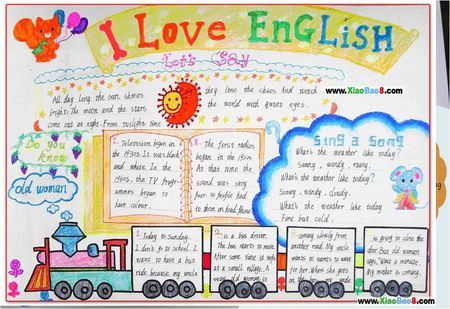 I LOVE ENGLISH
Let's Say
www.XiaoBao8.com
All day long the sun shines
bright. The moon and the stars
come out at night. From twilight time
they love the skies And watch
the world with quiet eyes.
Do you
know
old woman
Television began in
the 1930s. It was black
and white. In the
1960s, the TV progr-
ammes began to
have colour.
The first radios
began in the 1920s
At that time the
sound was very
poor. So people had
to them on head phone
Sing a Song
What's the weather like today?
Sunny, windy, rainy.
What's the weather like today?
Snowy, windy, cloudy.
What's the weather like today
Fine but cold.
1. Today to Sunday.
I don't go to school. I
want to have a bus
ride because my uncle
2. is a bus driver.
The bus wants to move.
After some time it stops
at a small village. A
very old woman is
coming slowly from
another road. My uncle
wants to wants to wave
for her. When she goes
on the uncle
is going to close the
door. Bus old woman
says, "Wait a minute.
My mother is coming.
www.XiaoBao8.com